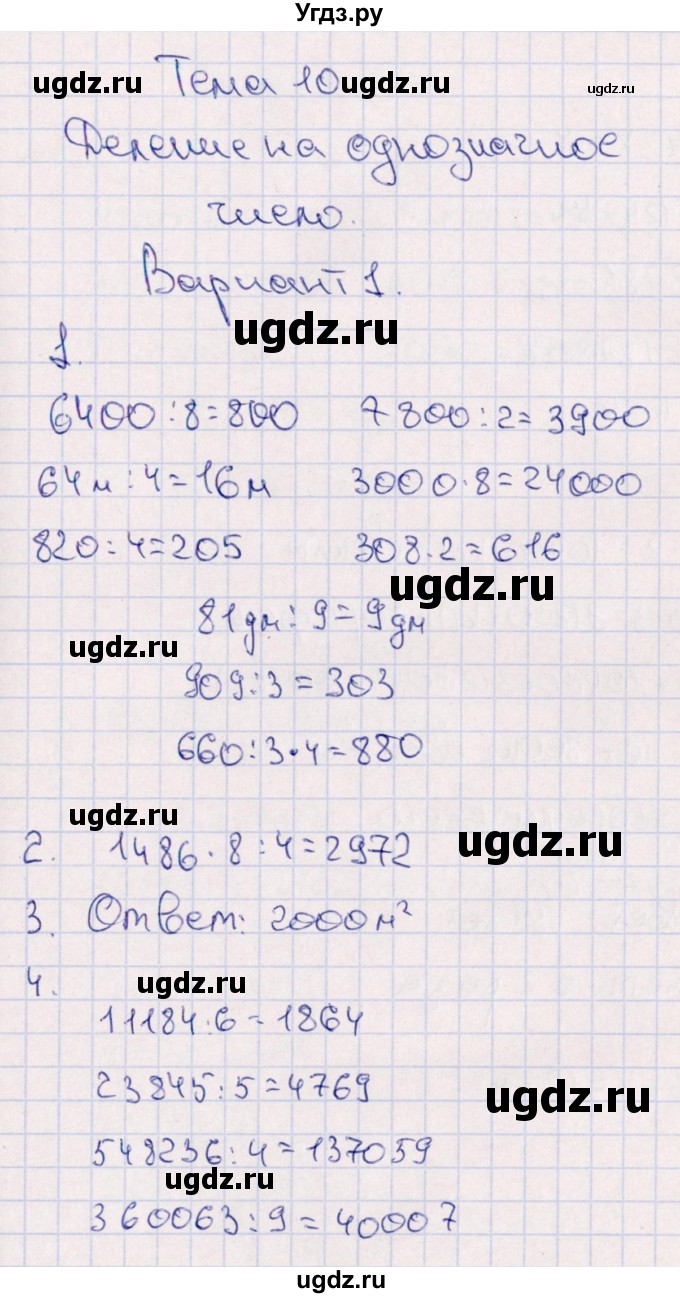 Угдз.ру
ugdz.ru Тема 10 ugdz.ru ugdz.ru
Деление на однозначное
число.
Вариант 1.
ugdz.ru
1.
6400:8=800 7800:2=3900
64м:4=16м 3000·8=24000
820:4=205 308·2=616
ugdz.ru
81дм:9=9дм
ugdz.ru
909:3=303
660:3·4=880
ugdz.ru
2. 1486·8:4=2972 ugdz.ru
3. Ответ: 2000м²
4. ugdz.ru
11184:6=1864
23845:5=4769 ugdz.ru
548236:4=137059
ugdz.ru
360063:9=40007
ugdz.ru